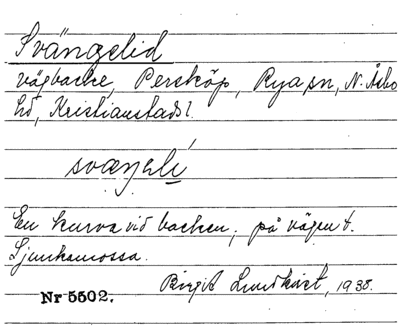 Svängelid
vägbacke, Persköp, Rya sn, N. Åsbo
hd, Kristianstads l.
En kurva vid backen, på vägen t.
Ljunhamossa.
Birgit Lundkvist, 1938.
Nr 5502.